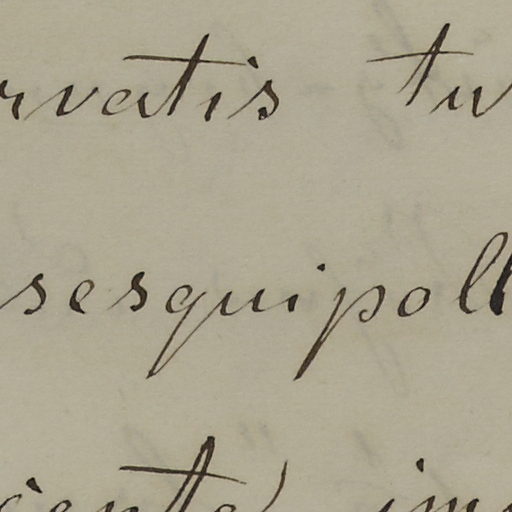 rvatis tu
sesquipoll
cente, im